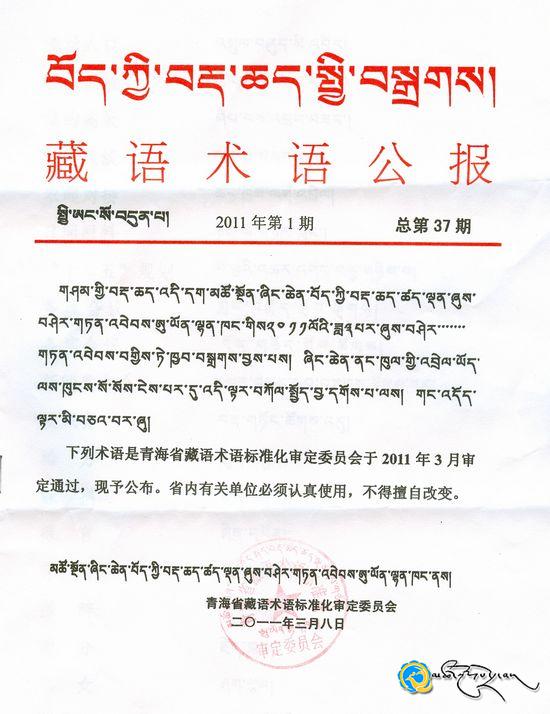 བོད་ཀྱི་བརྡ་ཆད་སྤྱི་བསྒྲགས།
藏语术语公报
སྤྱི་ཨང་སོ་བདུན་པ། 2011年第1期 总第37期
གཤམ་གྱི་བརྡ་ཆད་འདི་དག་མཚོ་སྔོན་ཞིང་ཆེན་བོད་ཀྱི་བརྡ་ཆད་ཚད་ལྡན་ཞུས་
བཤེར་གཏན་འབེབས་ཨུ་ཡོན་ལྷན་ཁང་གིས༢༠༡༡ལོའི་ཟླ༣པར་ཞུས་བཤེར……
གཏན་འབེབས་བགྱིས་ཏེ་ཁྱབ་བསྒྲགས་བྱས་པས། ཞིང་ཆེན་ནང་ཁུལ་གྱི་འབྲེལ་ཡོད་
ལས་ཁུངས་སོ་སོས་ངེས་པར་དུ་འདི་ལྟར་བཀོལ་སྤྱོད་བྱ་དགོས་པ་ལས། གང་འདོད་
ལྟར་མི་བཅའ་བར་ཞུ།
下列术语是青海省藏语术语标准化审定委员会于2011年3月审
定通过，现予公布。省内有关单位必须认真使用，不得擅自改变。
མཚོ་སྔོན་ཞིང་ཆེན་བོད་ཀྱི་བརྡ་ཆད་ཚད་ལྡན་ཞུས་བཤེར་གཏན་འབེབས་ཨུ་ཡོན་ལྷན་ཁང་ནས།
青海省藏语术语标准化审定委员会
二〇一一年三月八日
审定委员会